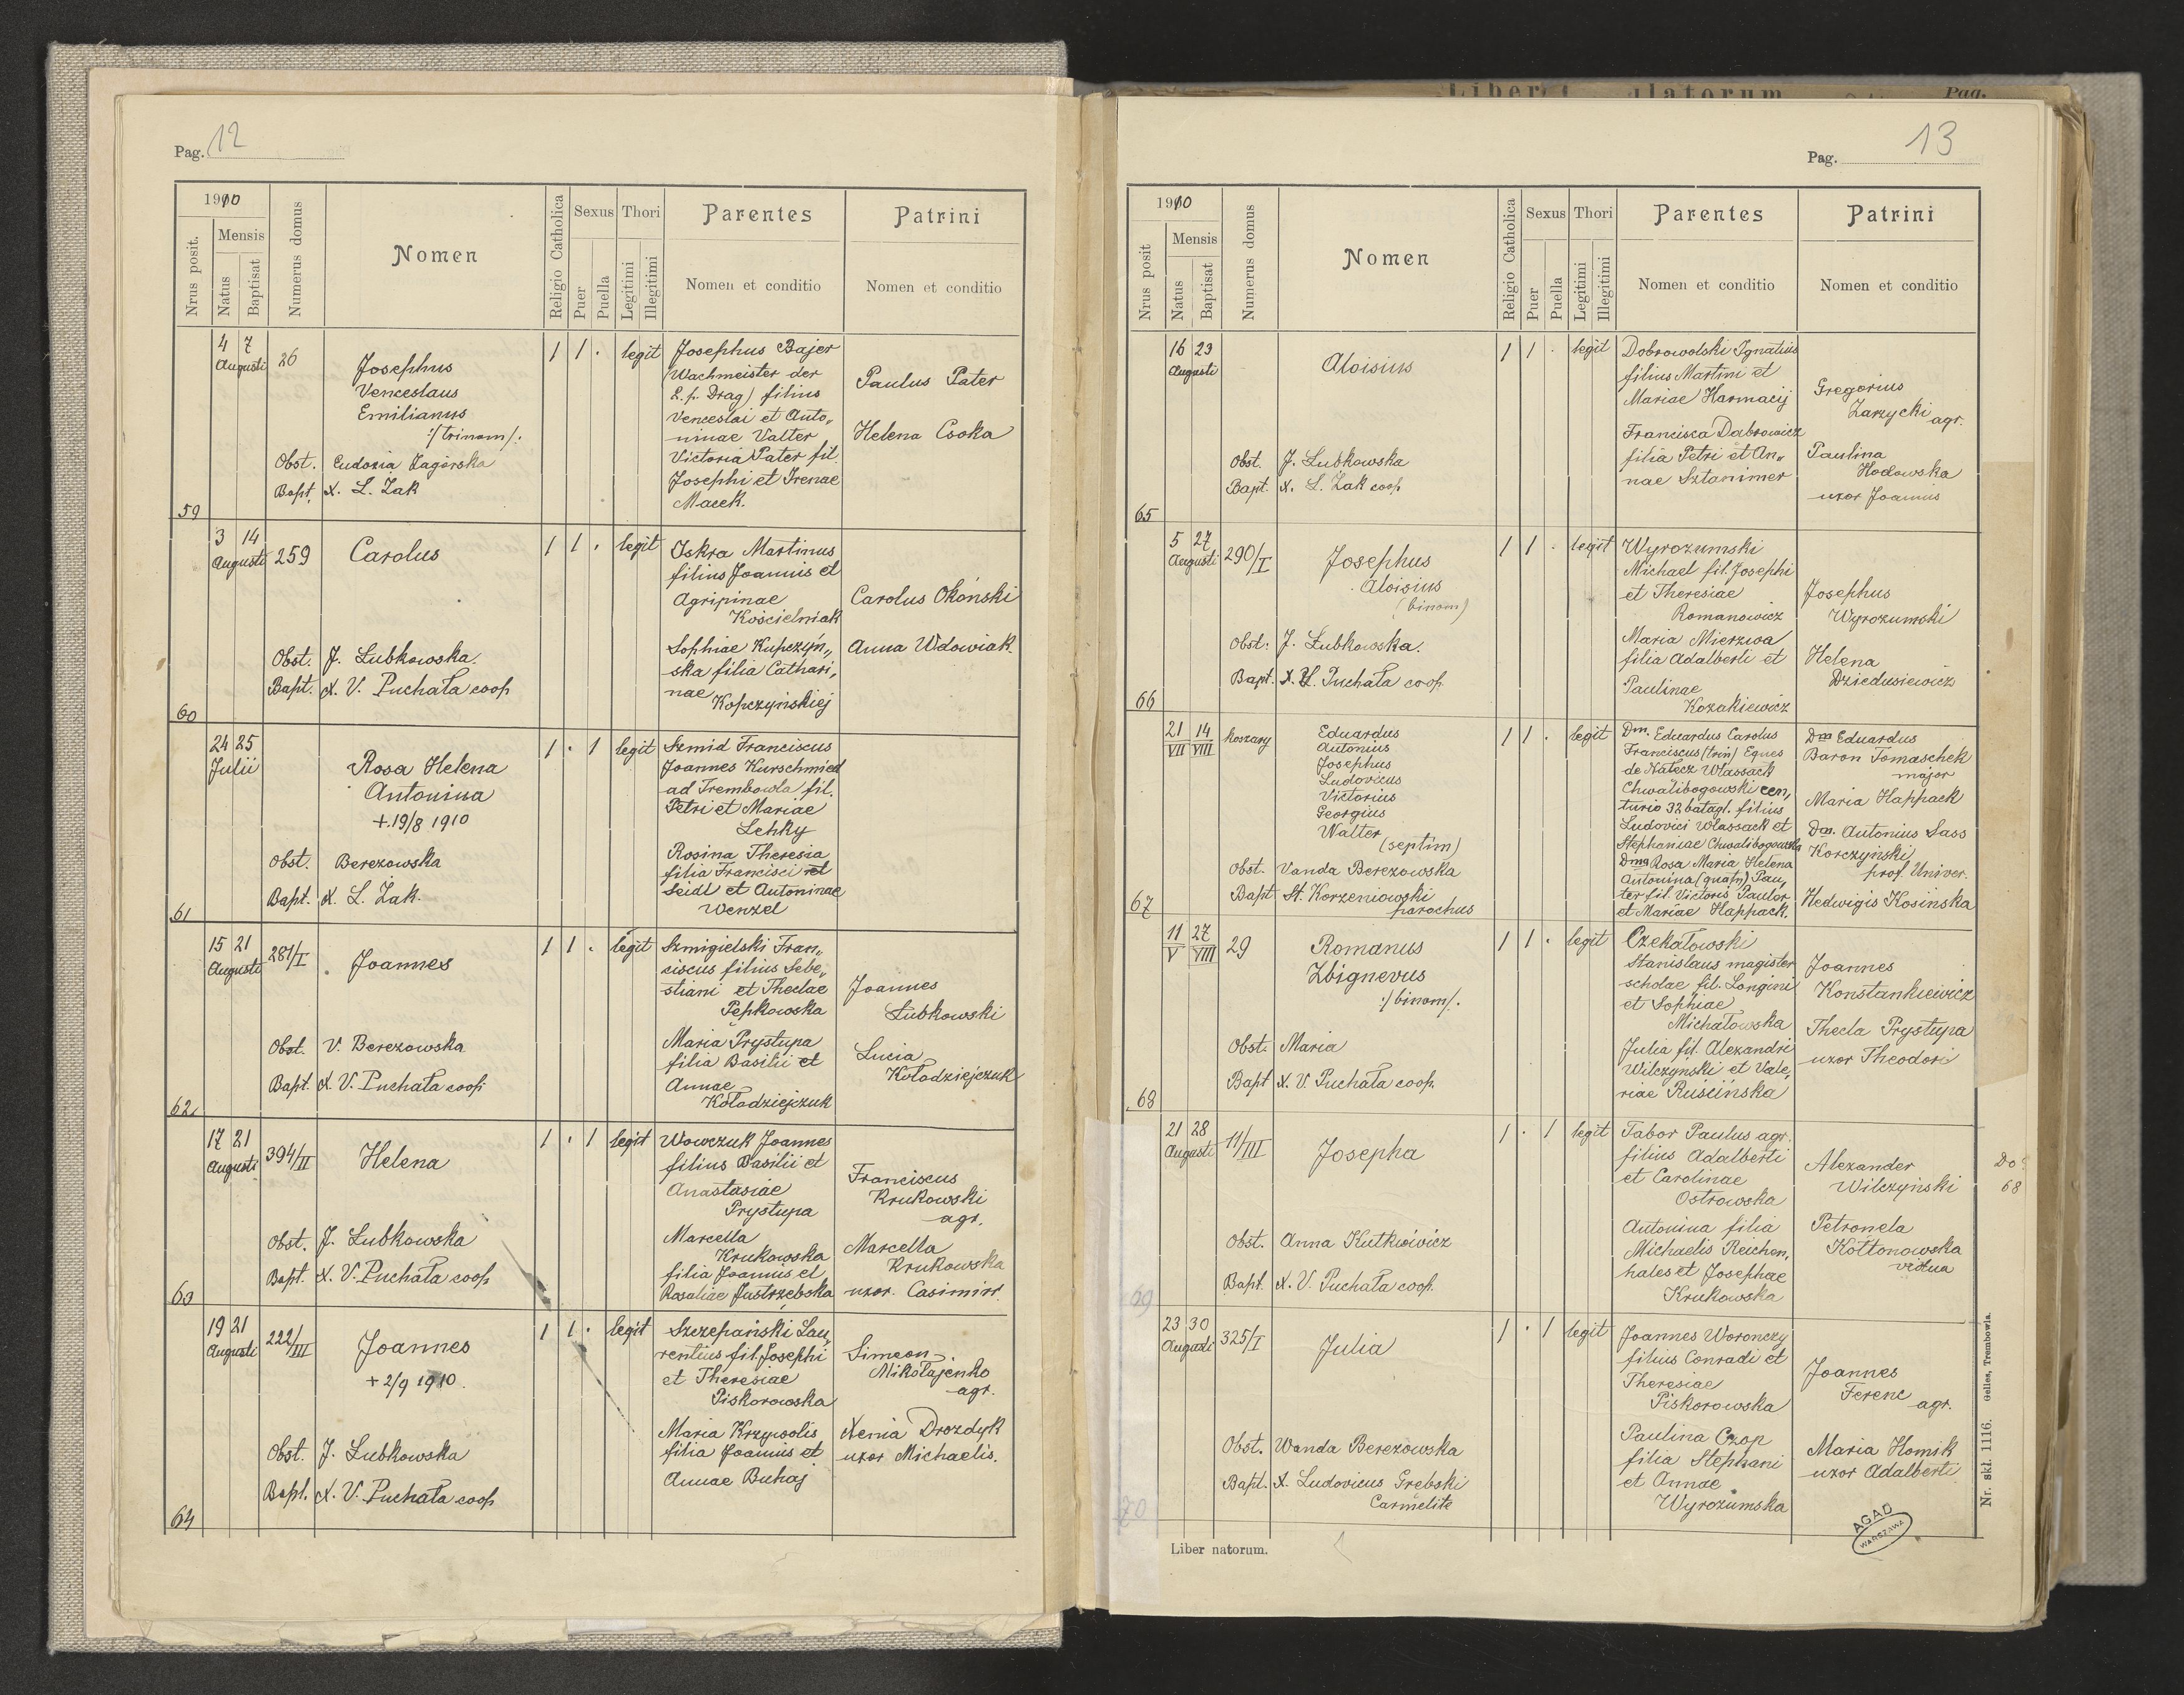 Pag. 12
1910
Nrus posit.
Mensis
Natus
Baptisat
Numerus domus
Nomen
Religio Catholica
Sexus
Puer
Puella
Thori
Legitimi
Illegitimi
Parentes
Nomen et conditio
Patrini
Nomen et conditio
59
4 7
Augusti
26
Josephus
Venceslaus
Emilianus
:/trinom/:
Obst. Eudoxia Zagórska
Bapt. X. L. Żak
1 1 . legit
Josephus Bajer
(Wachmeister der
L. p. Drag) filius
Venceslai et Anto„
ninae Valter
Victoria Pater fil.
Josephi et Irenae
Macek.
Paulus Pater
Helena Csoka
60
3 14
Augusti
259
Carolus
Obst. J. Łubkowska.
Bapt. X. V. Puchała coop
1 1 . legit
Iskra Martinus
filius Joannis et
Agripinae
Kościelniak
Sophiae Kupczyń„
ska filia Cathari„
nae
Kopczyńskiej
Carolus Okónski
Anna Wdowiak.
61
24 25
Julii
Rosa Helena
Antonina
+.19/8 1910
Obst. Berezowska
Bapt. X. L. Żak.
1 . 1 legit
Szmid Franciscus
Joannes Kurschmied
ad Trembowla fil.
Petri et Mariae
Lehky
Rosina Theresia
filia Francisci et
Seidl et Antoninae
Wenzel
62
15 21
Augusti
281/I
Joannes
Obst. V. Berezowska
Bapt. X. V. Puchała coop
1 1 . legit
Szmigielski Fran„
ciscus filius Sebe„
stiani et Theclae
Pępkowska
Maria Prystupa
filia Basilii et
Annae
Kołodziejczuk
Joannes
Łubkowski
Lucia
Kołodziejczuk
63
17 21
Augusti
394/II
Helena
Obst. J. Łubkowska
Bapt. X. V. Puchała coop
1 . 1 legit
Wowczuk Joannes
filius Basilii et
Anastasiae
Prystupa
Marcella
Krukowska
filia Joannis et
Rosaliae Justrzębska
Franciscus
Krukowski
agr.
Marcella
Krukowska
uxor. Casimiri
64
19 21
Augusti
222/III
Joannes
+ 2/9 1910.
Obst. J. Łubkowska
Bapt. X. V. Puchała coop
1 1 . legit
Szczepański Lau„
rentius fil. Josephi
et Theresiae
Piskorowska
Maria Krzywolis
filia Joannis et
Annae Buhaj
Simeon
Mikołajenko
agr.
Xenia Drozdyk
uxor Michaelis.
Pag. 13
1910
Nrus posit
Mensis
Natus
Baptisat
Numerus domus
Nomen
Religio Catholica
Sexus
Puer
Puella
Thori
Legitimi
Illegitimi
Parentes
Nomen et conditio
Patrini
Nomen et conditio
65
16 23
Augusti
Aloisius
Obst. J. Łubkowska
Bapt. X. L. Żak coop
1 1 . legit
Dobrowolski Ignatius
filius Martini et
Mariae Harmacij
Francisca Dabrowicz
filia Petri et An„
nae Sztanimer
Gregorius
Zarzycki agr.
Paulina
Hodowska
uxor Joannis
66
5 27
Augusti
290/I
Josephus
Aloisius
(binom)
Obst. J. Łubkowska.
Bapt. X. V. Puchała coop.
1 1 . legit
Wyrozumski
Michael fil. Josephi
et Theresiae
Romanowicz
Maria Mierzwa
filia Adalberti et
Paulinae
Kozakiewicz
Josephus
Wyrozumski
Helena
Dziedusiewicz
67
21 14
VII VIII
Koszary
Eduardus
Antonius
Josephus
Ludovicus
Victorius
Georgius
Walter
(septim)
Obst. Vanda Berezowska
Bapt St. Korzeniowski
parochus
1 1 . legit
Dm. Eduardus Carolus
Franciscus (trin) Eques
de Nałecz Wlassack
Chwalibogowski cen„
turio 32 batagl. filius
Ludovici Wlassack et
Stephaniae Chwalibogowska
Dma Rosa Maria Helena
Antonina (quatr) Pau„
ter fil. Victoris Pautor
et Mariae Happack.
Dm Eduardus
Baron Tomaschek
major
Maria Happack
Dm. Antonius Sass
Korczyński
prof. Univer.
Hedwigis Kosińska
68
11 27
V VIII
29
Romanus
Zbignevus
:/binom/:
Obst. Maria
Bapt X. V. Puchała coop.
1 1 . legit
Czekałowski
Stanislaus magister
scholae fil. Longini
et Sophiae
Michałowska
Julia fil. Alexandri
Wilczyński et Vale„
riae Ruścińska
Joannes
Konstankiewicz
Thecla Prystupa
uxor Theodori
69
21 28
Augusti
11/III
Josepha
Obst. Anna Kutkwivicz
Bapt. X. V. Puchała coop.
1 . 1 legit
Tabor Paulus agr.
filius Adalberti
et Carolinae
Ostrowska
Antonina filia
Michaelis Reichen„
hales et Josephae
Krukowska
Alexander
Wilczyński
Petronela
Kołtonowska
vidua
Do
68
70
23 30
Augusti
325/I
Julia
Obst. Wanda Berezowska
Bapt. X. Ludovicus Grebski
Carmelite
1 . 1 legit
Joannes Woronczy
filius Conradi et
Theresiae
Piskorowska
Paulina Czop
filia Stephani
et Annae
Wyrozumska
Joannes
Ferenc agr.
Maria Homik
uxor Adalberti
AGAD
WARSZAWA
Liber natorum.
Nr. skł. 1116. Gelles, Trembowla.